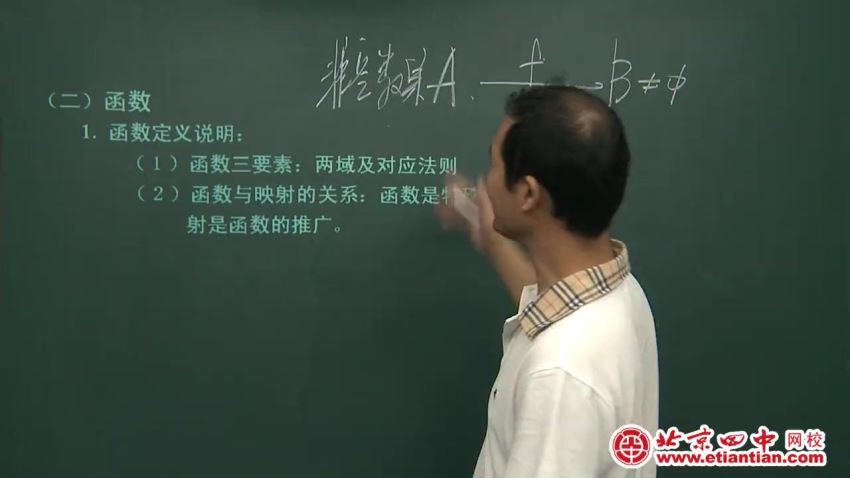 非空数集A. f B≠φ
（二）函数
1. 函数定义说明：
（1）函数三要素：两域及对应法则
（2）函数与映射的关系：函数是特
射是函数的推广。
北京四中网校
www.etiantian.com